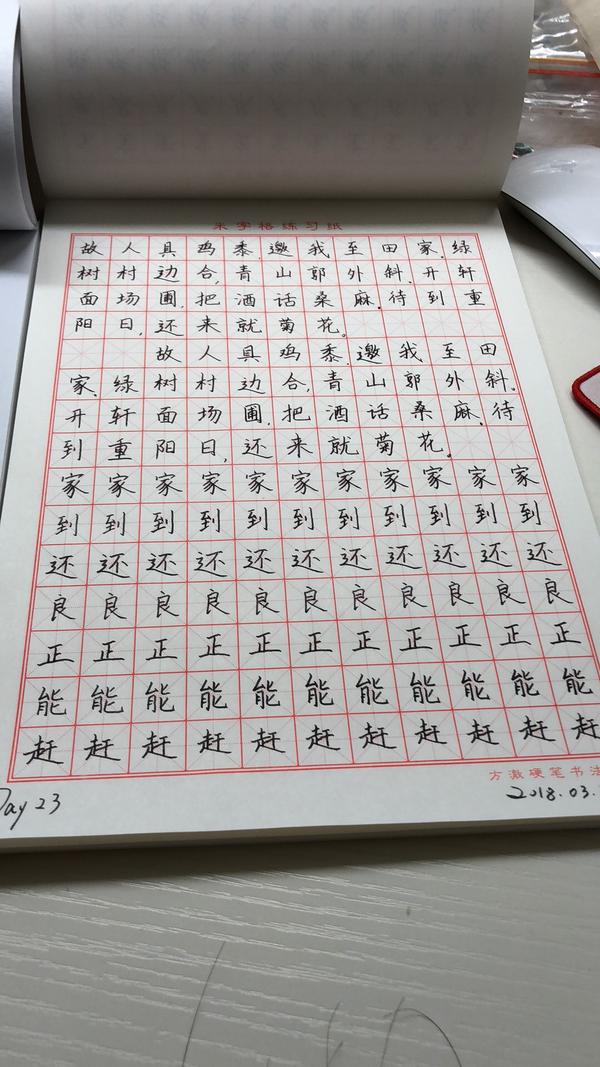 米字格练习纸
故人具鸡黍,邀我至田家.绿
树村边合,青山郭外斜.开轩
面场圃,把酒话桑麻.待到重
阳日,还来就菊花。
故人具鸡黍,邀我至田
家.绿树村边合,青山郭外斜.
开轩面场圃,把酒话桑麻.待
到重阳日,还来就菊花。
家家家家家家家家家家家
到到到到到到到到到到到
还还还还还还还还还还还
良良良良良良良良良良良
正正正正正正正正正正正
能能能能能能能能能能能
赶赶赶赶赶赶赶赶赶赶赶
方激硬笔书法
Day 23
2018.03.